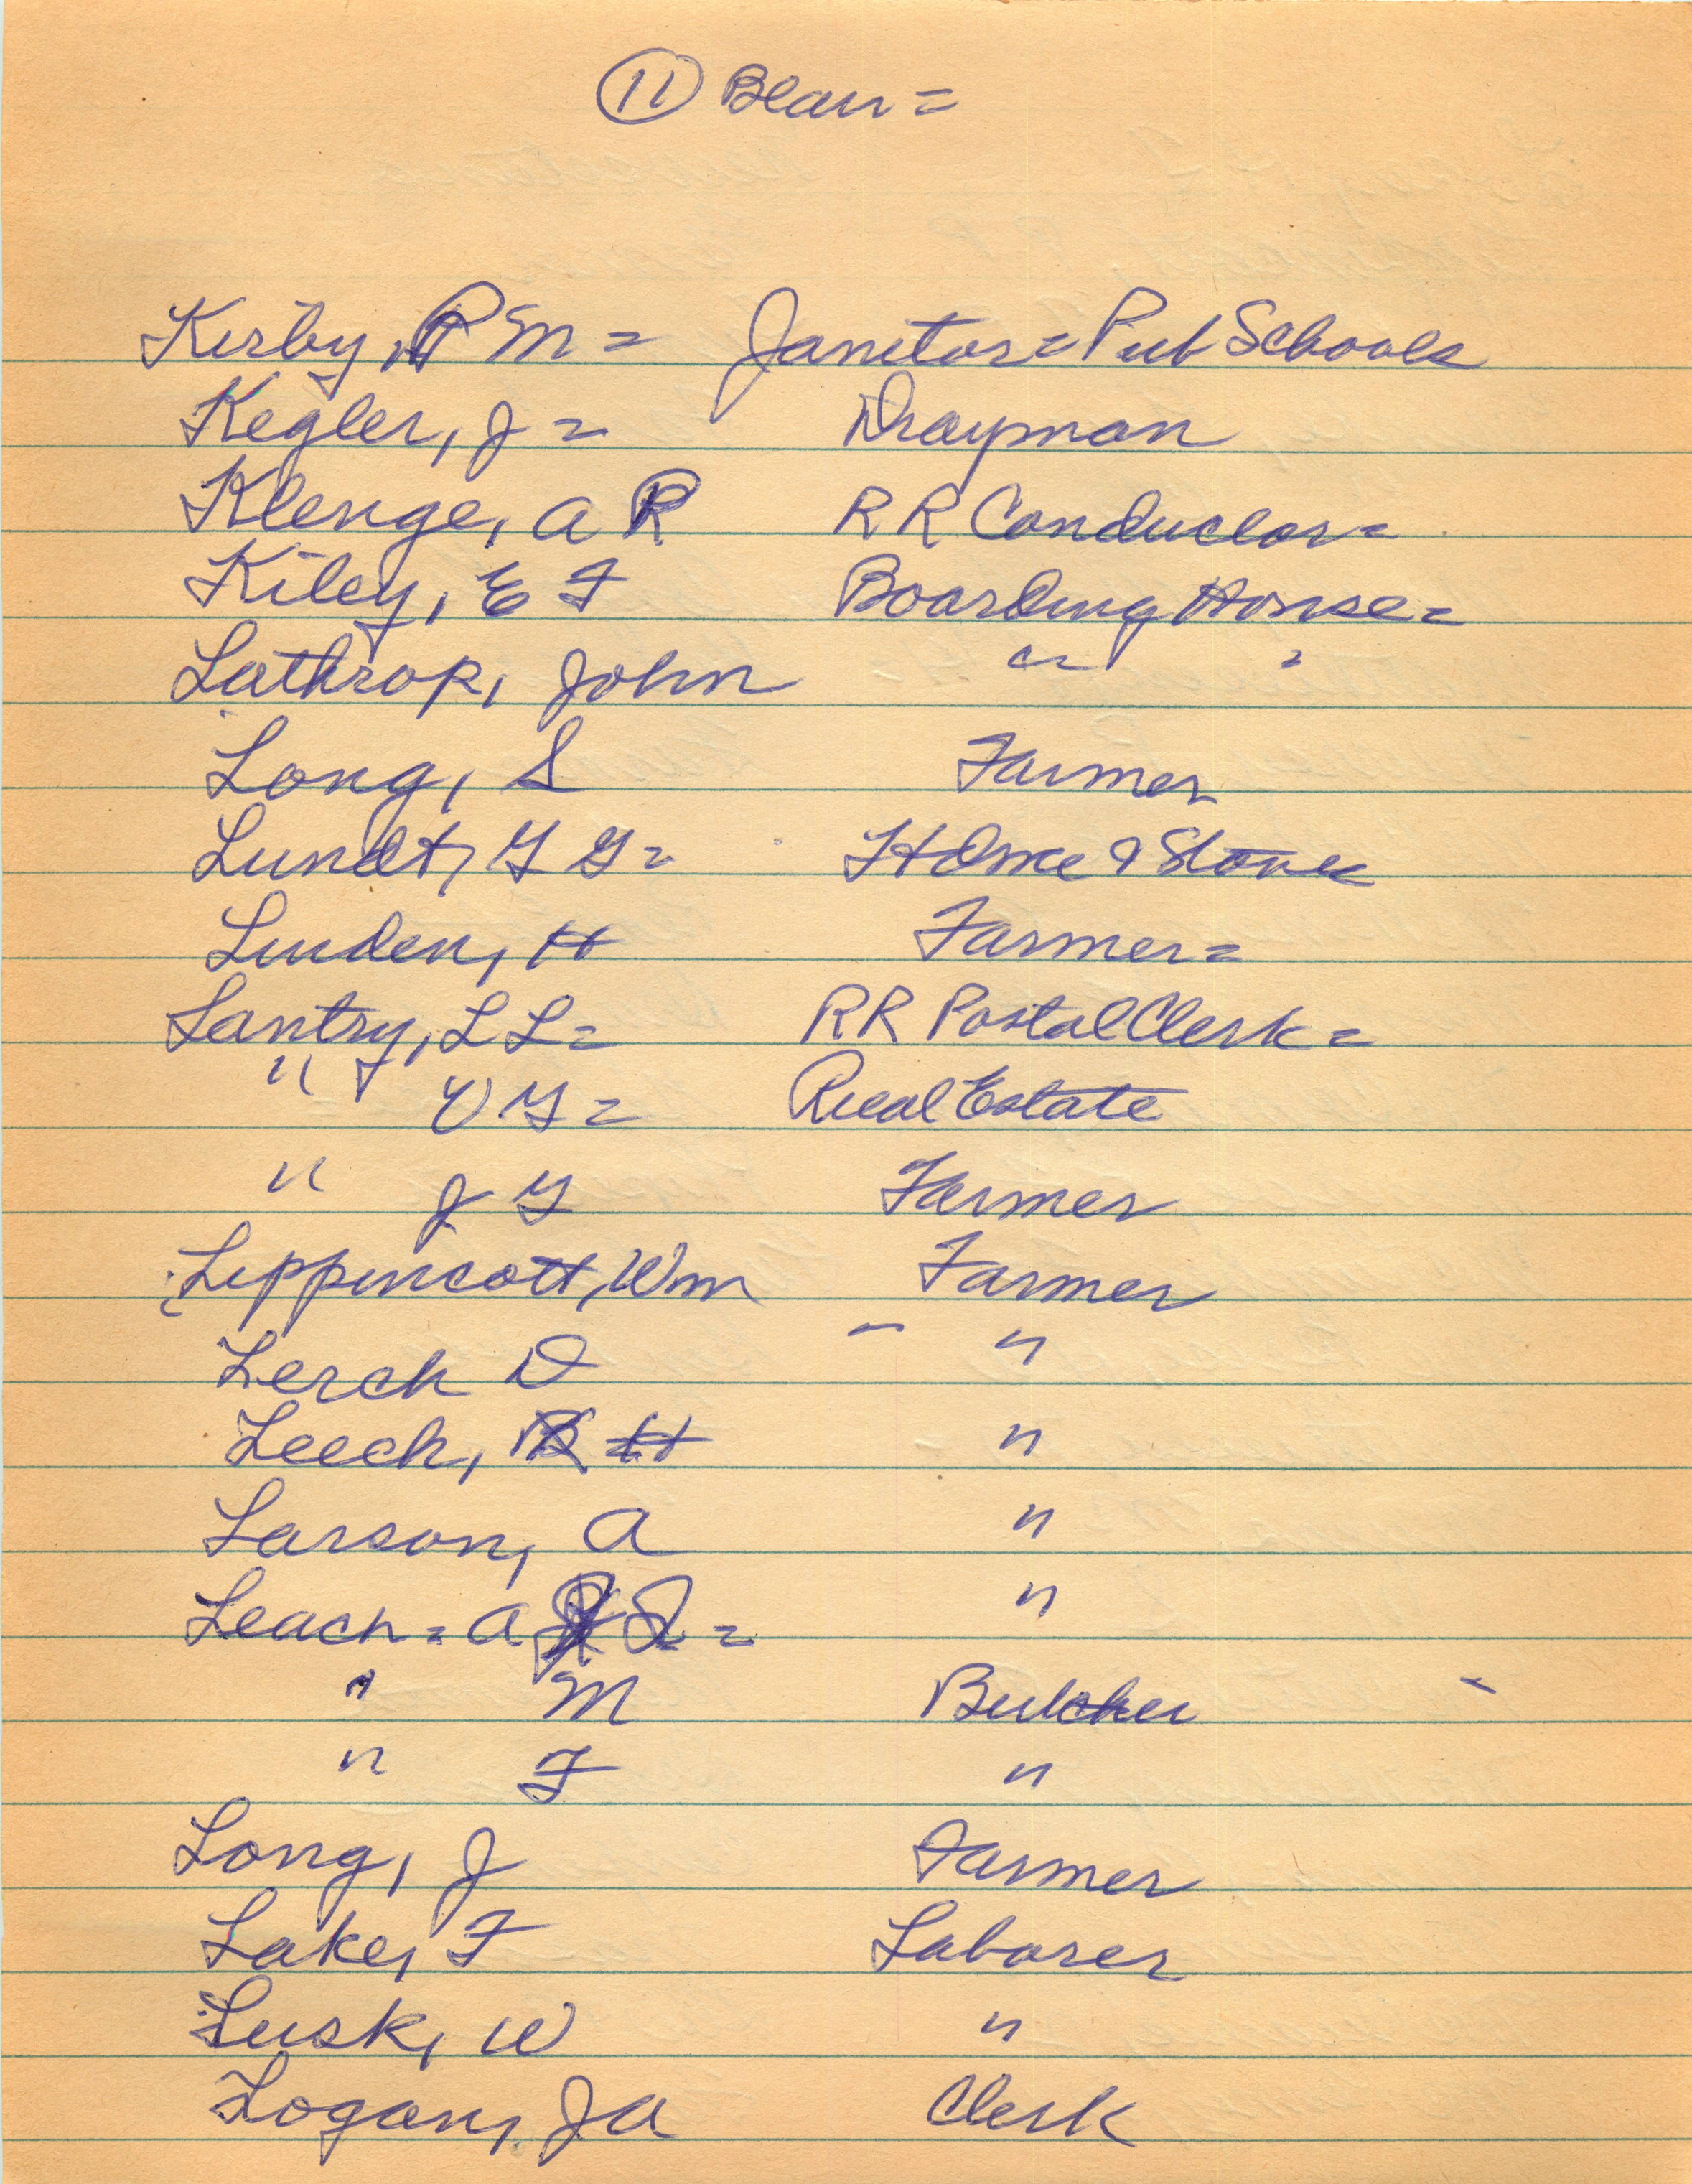 (11) Blair =
Kirby, R M = Janitor = Pub Schools
Kegler, J = Drayman
Klenge, A R RR Conductor =
Kiley, E F Boarding House =
Lathrop, John " "
Long, S Farmer
Lundt, G G = Home & Stover
Linden, H Farmer =
Lantry, L L = RR Postal Clerk =
" V G = Real Estate
" J G Farmer
Lippincott, Wm Farmer
Lerch D "
Leech, H "
Larson, A "
Leach = A L = "
" M Butcher
" F "
Long, J Farmer
Lake, F Laborer
Lusk, W "
Logan, JA Clerk